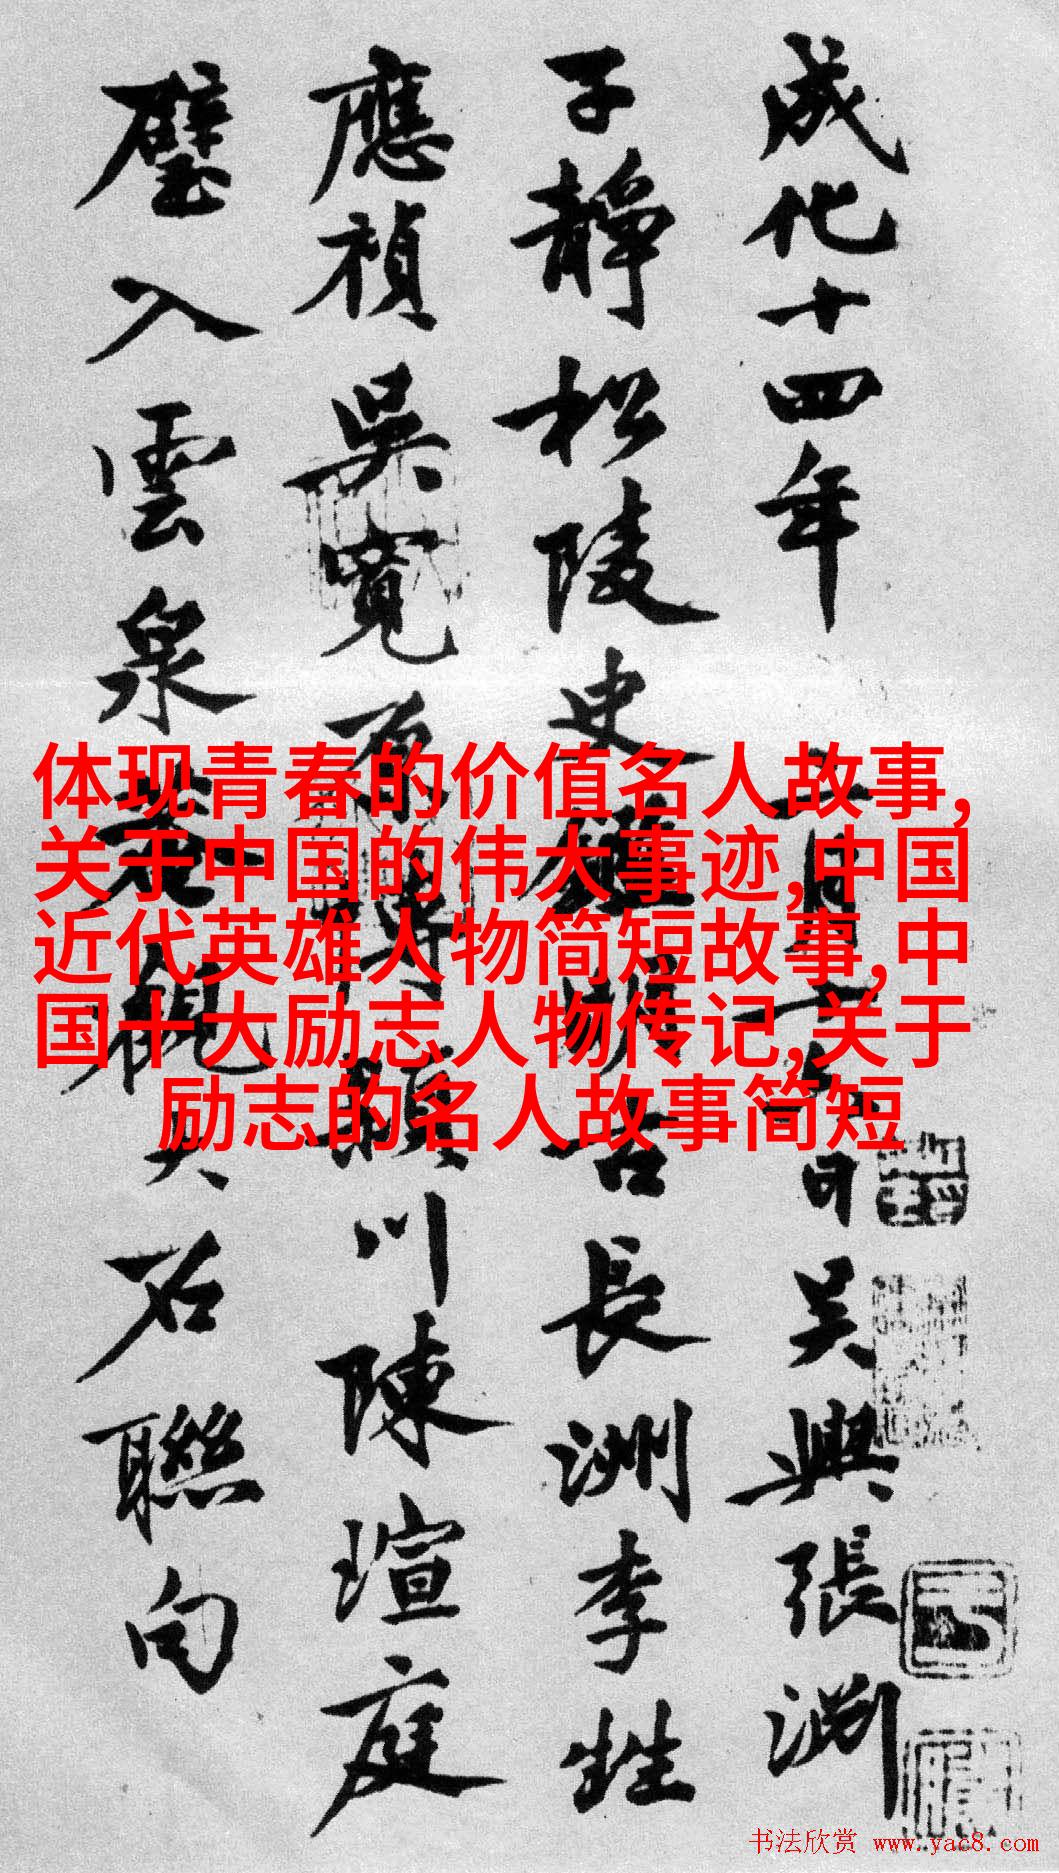 成化十四年 六月十六日吴興張渊
子静松陵史 湖 古長洲李甡
應禎吴寬原博 潁川陳瑄庭
璧入雲泉 觀大石聯句
体现青春的价值名人故事,
关于中国的伟大事迹,中国
近代英雄人物简短故事,中
国十大励志人物传记,关于
励志的名人故事简短
书法欣赏 www.yac8.com